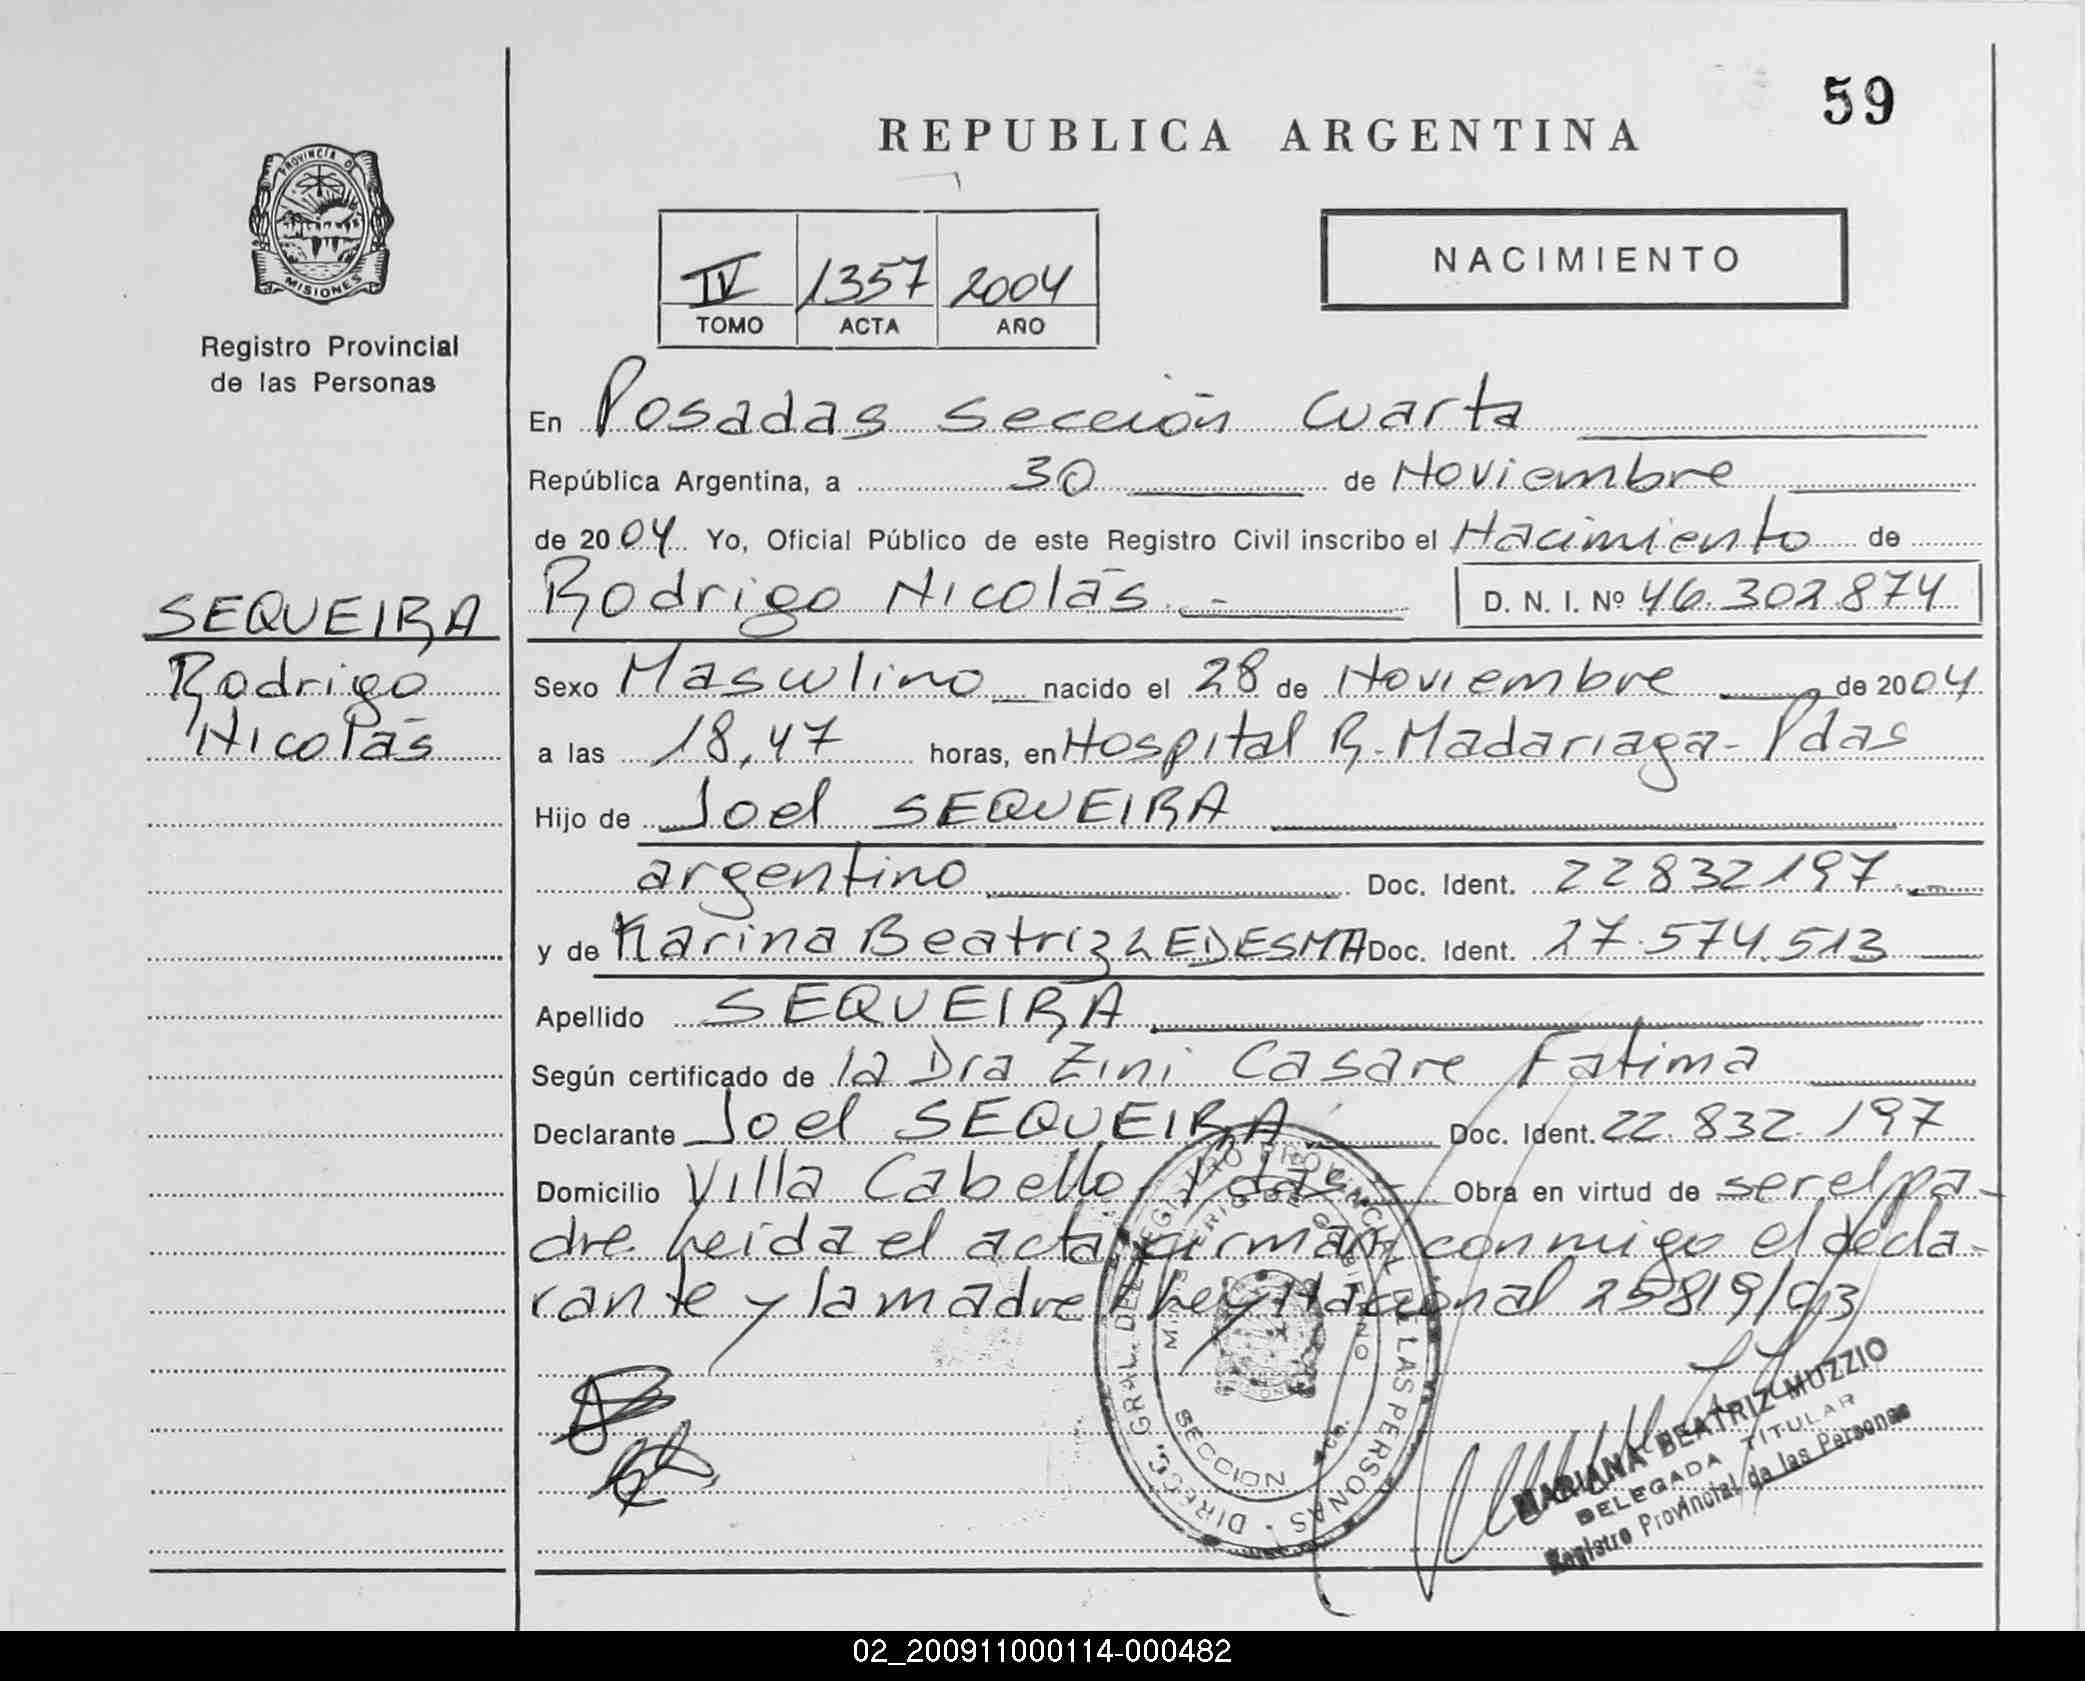 59
REPUBLICA ARGENTINA
PROVINCIA DE
MISIONES
Registro Provincial
de las Personas
IV 1357 2004
TOMO ACTA AÑO
NACIMIENTO
En Posadas Sección Cuarta
República Argentina, a 30 de Noviembre
de 2004 Yo, Oficial Público de este Registro Civil inscribo el Nacimiento de
Rodrigo Nicolás.- D. N. I. Nº 46.302.874
SEQUEIRA
Rodrigo
Nicolás
Sexo Masculino nacido el 28 de Noviembre de 2004
a las 18,47 horas, en Hospital R. Madariaga - Pdas
Hijo de Joel SEQUEIRA
argentino Doc. Ident. 22832197
y de Karina Beatriz LEDESMA Doc. Ident. 27.574.513
Apellido SEQUEIRA
Según certificado de la Dra Zini Casare Fatima
Declarante Joel SEQUEIRA Doc. Ident. 22.832.197
Domicilio Villa Cabello Pdas Obra en virtud de ser el pa-
dre leida el acta firman conmigo el decla-
rante y la madre Ley Nacional 25819/03
DIRECC. GRAL. DEL REGISTRO PROVINCIAL DE LAS PERSONAS
MINISTERIO DE GOBIERNO
SECCION 4ta.
MARIANA BEATRIZ MUZZIO
DELEGADA TITULAR
Registro Provincial de las Personas
02_200911000114-000482